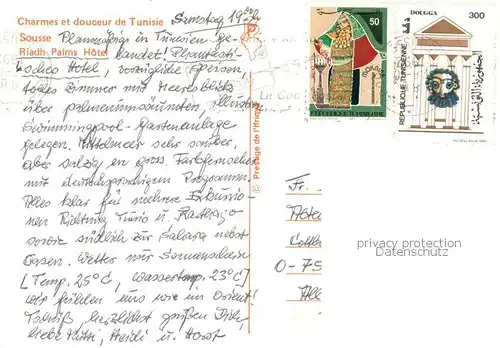 Charmes et douceur de Tunisie
Sousse
Riadh Palms Hôtel
Samstag
Planmäßig in Tunesien ge-
landet! Phantasti-
sches Hotel, vorzügliche Speisen,
tolles Zimmer mit Meeresblick
über palmenumsäumten
Swimmingpool-Gartenanlage
gelegen. Mittelmeer sehr sauber,
aber salzig en gros. Farbfernsehen
mit deutschsprachigen Programmen.
Alles klar für mehrere Exkursio-
nen Richtung Tunis u.
sowie südlich zur Sahara nebst
Oasen. Wetter mit Sonnenschein
[Temp. 25°C, Wassertemp. 23°C]
wir fühlen uns wie im Orient!
Tschüß, herzlichst grüßen Dich,
liebe Mutti, Heidi u. Horst
© Prestige de l'Ifriqia
50
REPUBLIQUE TUNISIENNE
DOUGGA
300
REPUBLIQUE TUNISIENNE
الجمهورية التونسية
Fr.
Hôte
D-75
All
privacy protection
Datenschutz